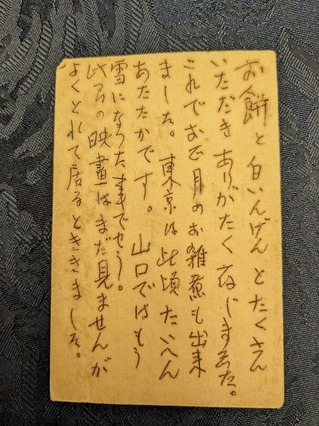 お餅と白いんげんとたくさん
いただきありがたく存じました。
これでお正月のお雑煮も出来
ました。東京は此頃たいへん
あたたかです。山口ではもう
雪になつた事でせう。
の映畫はまだ見ませんが
よくとれて居るとききました。